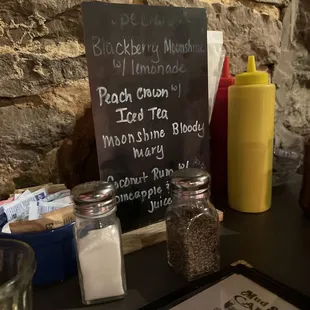 Blackberry Moonshine
w/ lemonade
Peach Crown w/
Iced Tea
Moonshine Bloody
Mary
Coconut Rum w/
Pineapple &
Juice